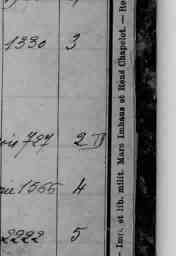 1330 3
727 2
1566 4
2222 5
— Imp. et lib. milit. Marc Imhaus et René Chapelot. —